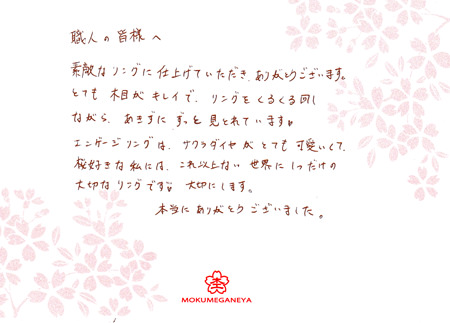 職人の皆様へ
素敵なリングに仕上げていただき、ありがとうございます。
とても木目がキレイで、リングをくるくる回し
ながら、あきずにずっと見とれています。
エンゲージリングは、サクラダイヤがとても可愛いくて、
桜好きな私には、これ以上ない世界に1つだけの
大切なリングです。大切にします。
本当にありがとうございました。
杢
MOKUMEGANEYA